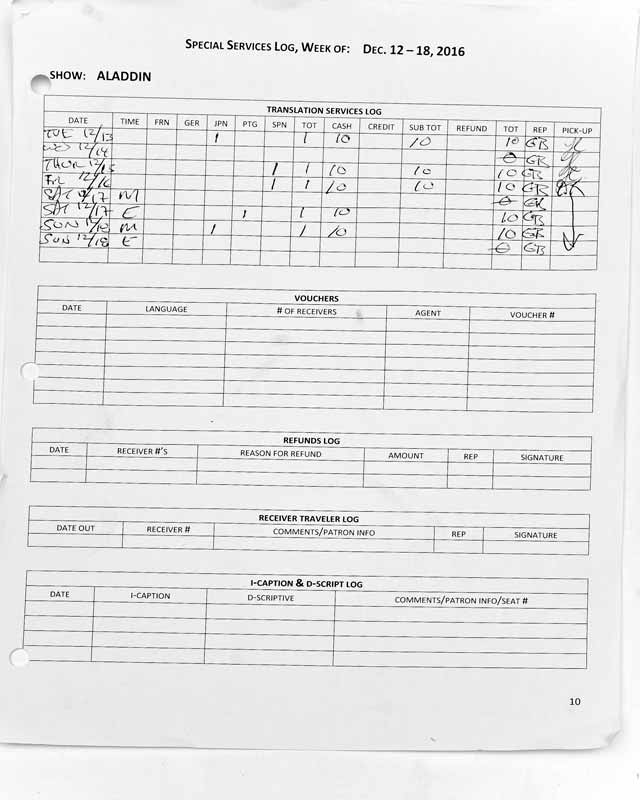 SPECIAL SERVICES LOG, WEEK OF: DEC. 12 – 18, 2016
SHOW: ALADDIN
TRANSLATION SERVICES LOG
DATE TIME FRN GER JPN PTG SPN TOT CASH CREDIT SUB TOT REFUND TOT REP PICK-UP
TUE 12/13 1 1 10 10 10 GB
WED 12/14 0 GB
THUR 12/15 1 1 10 10 10 GB
FRI 12/16 1 1 10 10 10 GB
SAT 12/17 M 0 GB
SAT 12/17 E 1 1 10 10 GB
SUN 12/18 M 1 1 10 10 GB
SUN 12/18 E 0 GB
VOUCHERS
DATE LANGUAGE # OF RECEIVERS AGENT VOUCHER #
REFUNDS LOG
DATE RECEIVER #'S REASON FOR REFUND AMOUNT REP SIGNATURE
RECEIVER TRAVELER LOG
DATE OUT RECEIVER # COMMENTS/PATRON INFO REP SIGNATURE
I-CAPTION & D-SCRIPT LOG
DATE I-CAPTION D-SCRIPTIVE COMMENTS/PATRON INFO/SEAT #
10